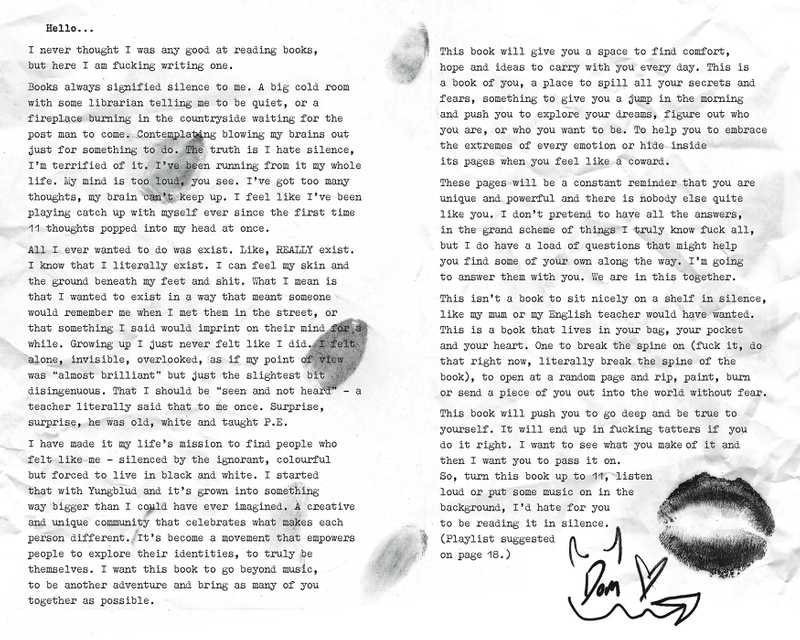 Hello...
I never thought I was any good at reading books,
but here I am fucking writing one.
Books always signified silence to me. A big cold room
with some librarian telling me to be quiet, or a
fireplace burning in the countryside waiting for the
post man to come. Contemplating blowing my brains out
just for something to do. The truth is I hate silence,
I'm terrified of it. I've been running from it my whole
life. My mind is too loud, you see. I've got too many
thoughts, my brain can't keep up. I feel like I've been
playing catch up with myself ever since the first time
11 thoughts popped into my head at once.
All I ever wanted to do was exist. Like, REALLY exist.
I know that I literally exist. I can feel my skin and
the ground beneath my feet and shit. What I mean is
that I wanted to exist in a way that meant someone
would remember me when I met them in the street, or
that something I said would imprint on their mind for a
while. Growing up I just never felt like I did. I felt
alone, invisible, overlooked, as if my point of view
was "almost brilliant" but just the slightest bit
disingenuous. That I should be "seen and not heard" – a
teacher literally said that to me once. Surprise,
surprise, he was old, white and taught P.E.
I have made it my life's mission to find people who
felt like me – silenced by the ignorant, colourful
but forced to live in black and white. I started
that with Yungblud and it's grown into something
way bigger than I could have ever imagined. A creative
and unique community that celebrates what makes each
person different. It's become a movement that empowers
people to explore their identities, to truly be
themselves. I want this book to go beyond music,
to be another adventure and bring as many of you
together as possible.
This book will give you a space to find comfort,
hope and ideas to carry with you every day. This is
a book of you, a place to spill all your secrets and
fears, something to give you a jump in the morning
and push you to explore your dreams, figure out who
you are, or who you want to be. To help you to embrace
the extremes of every emotion or hide inside
its pages when you feel like a coward.
These pages will be a constant reminder that you are
unique and powerful and there is nobody else quite
like you. I don't pretend to have all the answers,
in the grand scheme of things I truly know fuck all,
but I do have a load of questions that might help
you find some of your own along the way. I'm going
to answer them with you. We are in this together.
This isn't a book to sit nicely on a shelf in silence,
like my mum or my English teacher would have wanted.
This is a book that lives in your bag, your pocket
and your heart. One to break the spine on (fuck it, do
that right now, literally break the spine of the
book), to open at a random page and rip, paint, burn
or send a piece of you out into the world without fear.
This book will push you to go deep and be true to
yourself. It will end up in fucking tatters if you
do it right. I want to see what you make of it and
then I want you to pass it on.
So, turn this book up to 11, listen
loud or put some music on in the
background, I'd hate for you
to be reading it in silence.
(Playlist suggested
on page 18.)
Dom